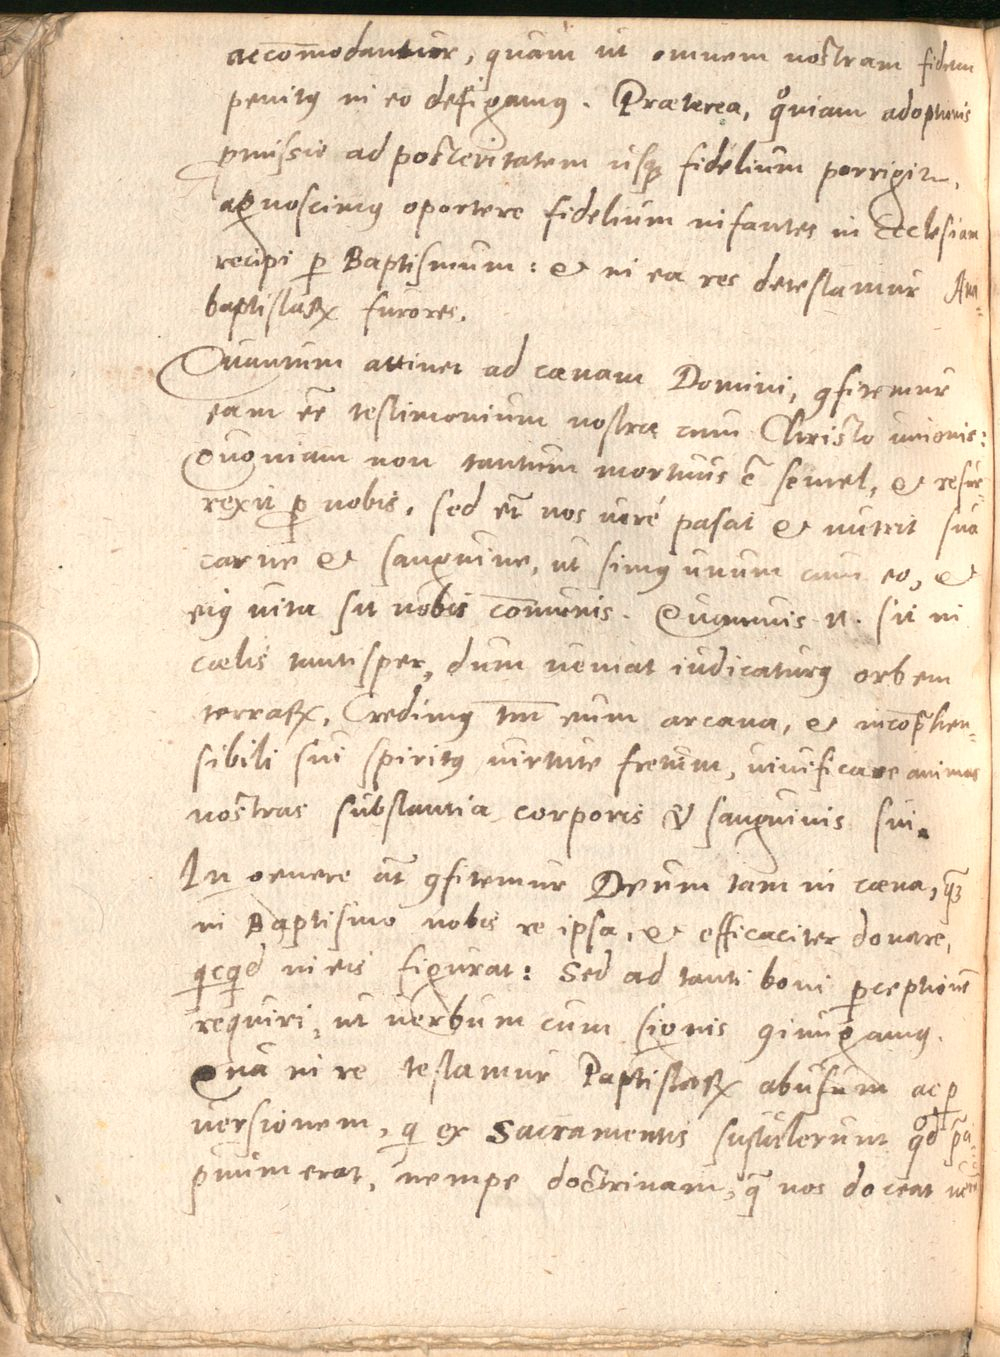 accom̄odantur, quam ut omnem nostram fidem
penitus in eo defigamus. Præterea, quoniam adoptionis
p̱missio ad posteritatem usq̨ fidelium porrigit᷑,
agnoscimus oportere fidelium infantes in Ecclesiam
recipi p̱ Baptismum: & in ea re detestamur Ana=
baptistaꝝ furores.
Quantum attinet ad cænam Domini, ꝯfitemur
eam eē testimonium nostræ cum Christo unionis:
Quoniam non tantum mortuus ē semel, & resur
rexit p̱ nobis, sed et̄ nos uerè pascit & nutrit sua
carne & sanguine, ut simus unum cum eo, &
eius uita sit nobis com̄unis. Quamuis n. sit in
cælis tantisper, dum ueniat iudicaturus orbem
terraꝝ, Credimus tm̄ eum arcana, & incōp̱hen=
sibili sui spiritus uirtute fretum, uiuificare animas
nostras substantia corporis & sanguinis sui.
In genere aūt ꝯfitemur Deum tam in cæna, q̄̃
in Baptismo nobis re ipsa, & efficaciter donare,
qcqd in eis figurat: Sed ad tanti boni p̱ceptionē
requiri, ut uerbum cum signis ꝯiungamus.
Qua in re testamur Papistaꝝ abusum ac p̱
uersionem, q ex Sacramentis sustulerunt qd p̄ci
puum erat, nempe doctrinam, q̄ nos doceat